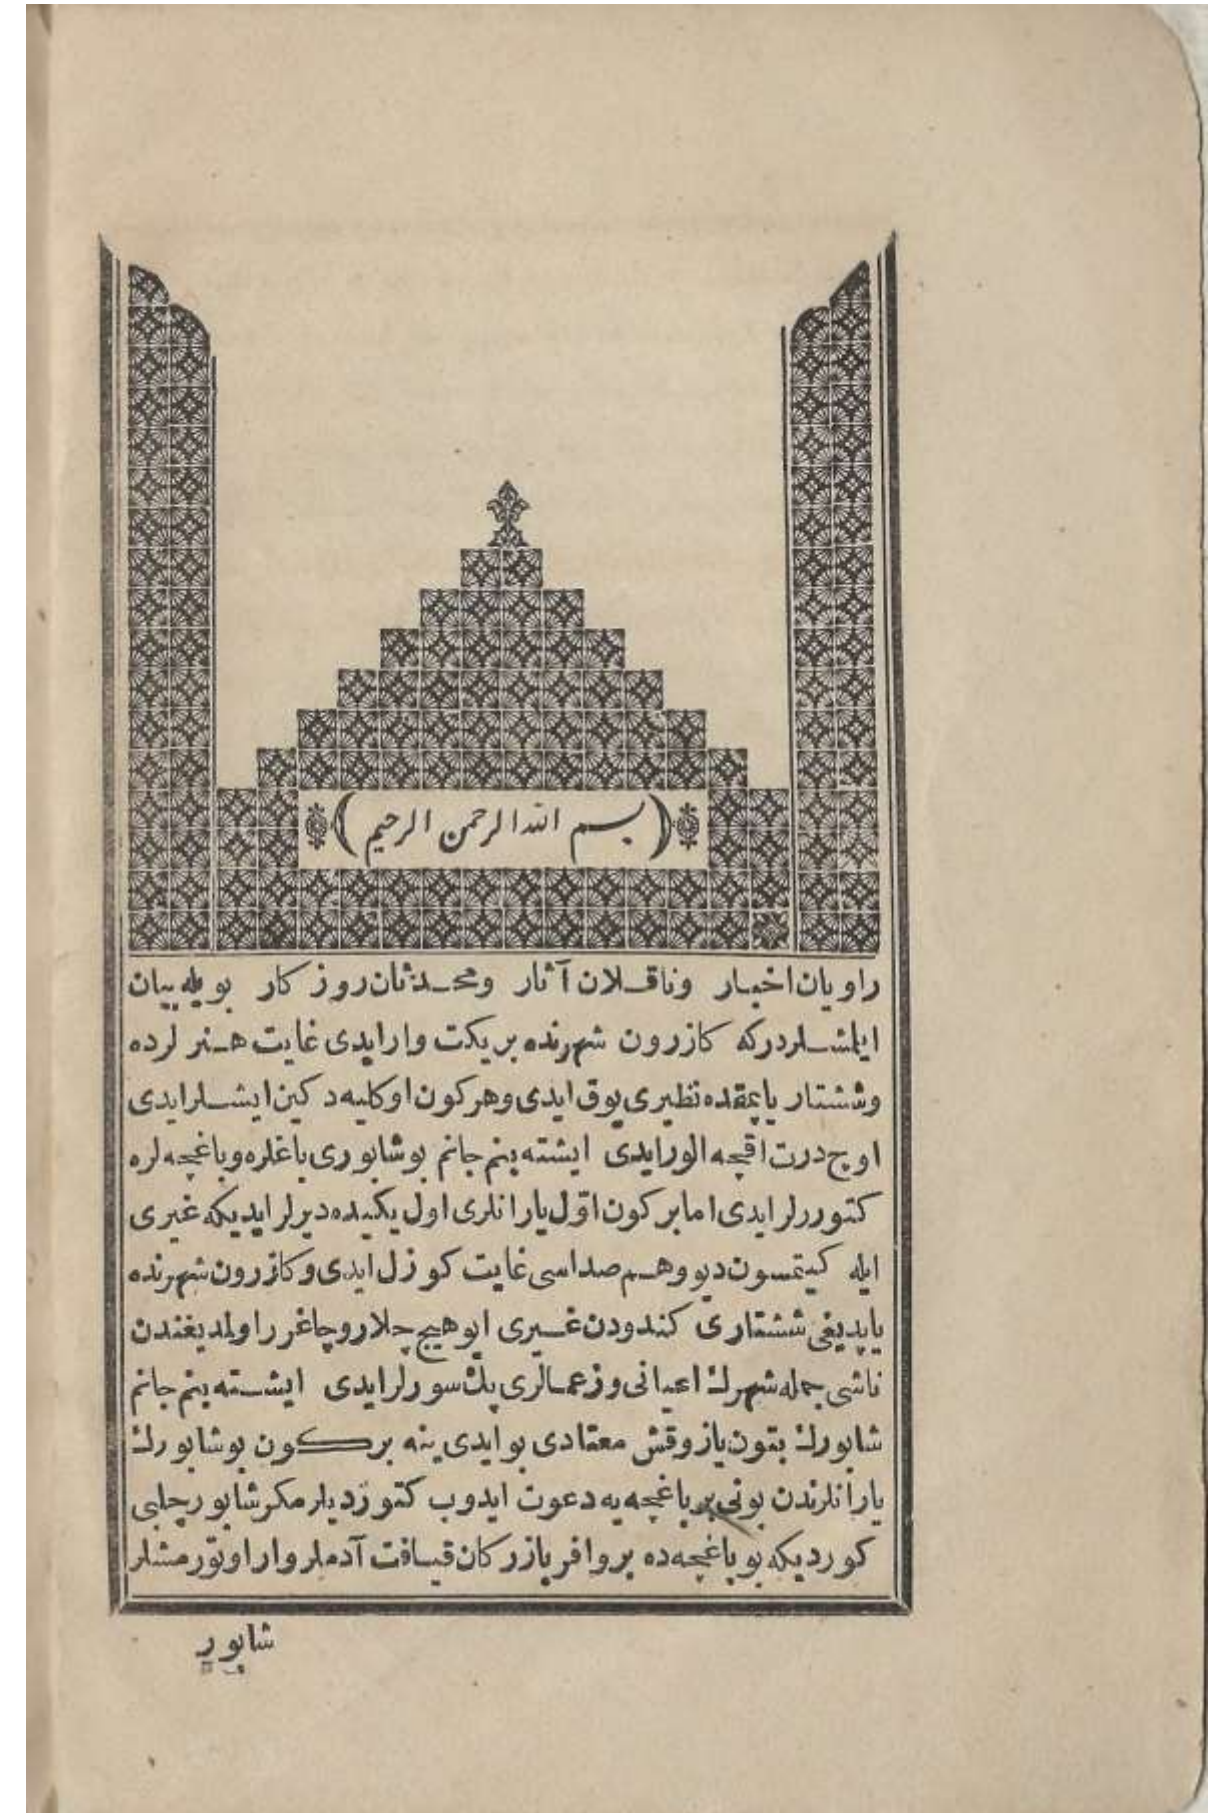 (بسم الله الرحمن الرحيم)
راويان اخبار وناقلان آثار ومحدثان روزكار بويله بيان
ايلمشلردركه كازرون شهرنده بر يكت وارايدى غايت هنرلرده
وششتار ياپمقده نظيرى يوق ايدى وهركون اوكليه دكين ايشلرايدى
اوچ درت اقچه الورايدى ايشته بنم جانم بوشابورى باغلره وباغچه لره
كتوررلر ايدى اما بركون اوّل يارانلرى اول يكيده ديرلر ايديكه غيرى
ايله كيتمسون ديو وهم صداسى غايت كوزل ايدى وكازرون شهرنده
ياپديغى ششتارى كندودن غيرى ايو هيچ چلار وچاغرر اولمديغندن
ناشى جمله شهرك اعيانى وزعمالرى پك سورلرايدى ايشته بنم جانم
شابورك بتون ياز وقش معتادى بوايدى ينه بركون بوشابورك
يارانلرندن بونى بر باغچه يه دعوت ايدوب كتورديلر مكر شابور چلبى
كورديكه بو باغچه ده بر وافر بازركان قيافت آدملر وار اوتورمشلر
شابور